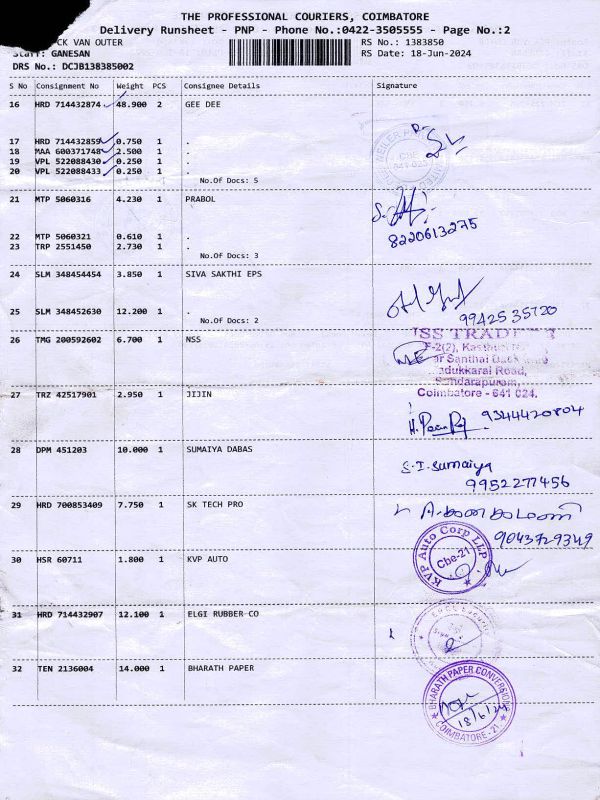 THE PROFESSIONAL COURIERS, COIMBATORE
Delivery Runsheet - PNP - Phone No.:0422-3505555 - Page No.:2
CK VAN OUTER RS No.: 1383850
Staff: GANESAN RS Date: 18-Jun-2024
DRS No.: DCJB138385002
S No Consignment No Weight PCS Consignee Details Signature
16 HRD 714432874 48.900 2 GEE DEE
17 HRD 714432859 0.750 1 .
18 MAA 600371748 2.500 1 .
19 VPL 522088430 0.250 1 .
20 VPL 522088433 0.250 1 .
No.Of Docs: 5
CBE
21 MTP 5060316 4.230 1 PRABOL
8220613275
22 MTP 5060321 0.610 1 .
23 TRP 2551450 2.730 1 .
No.Of Docs: 3
24 SLM 348454454 3.850 1 SIVA SAKTHI EPS
25 SLM 348452630 12.200 1 .
No.Of Docs: 2
99425 35720
26 TMG 200592602 6.700 1 NSS
Santhai
adukkarai Road,
Sundarapuram,
Coimbatore - 641 024.
27 TRZ 42517901 2.950 1 JIJIN
9344420804
28 DPM 451203 10.000 1 SUMAIYA DABAS
S.I.Sumaiya
9952277456
29 HRD 700853409 7.750 1 SK TECH PRO
9043729349
30 HSR 60711 1.800 1 KVP AUTO
KVP Auto Corp LLP
Cbe-21
31 HRD 714432907 12.100 1 ELGI RUBBER-CO
32 TEN 2136004 14.000 1 BHARATH PAPER
BHARATH PAPER CONVERSION
18/6/24
COIMBATORE - 21